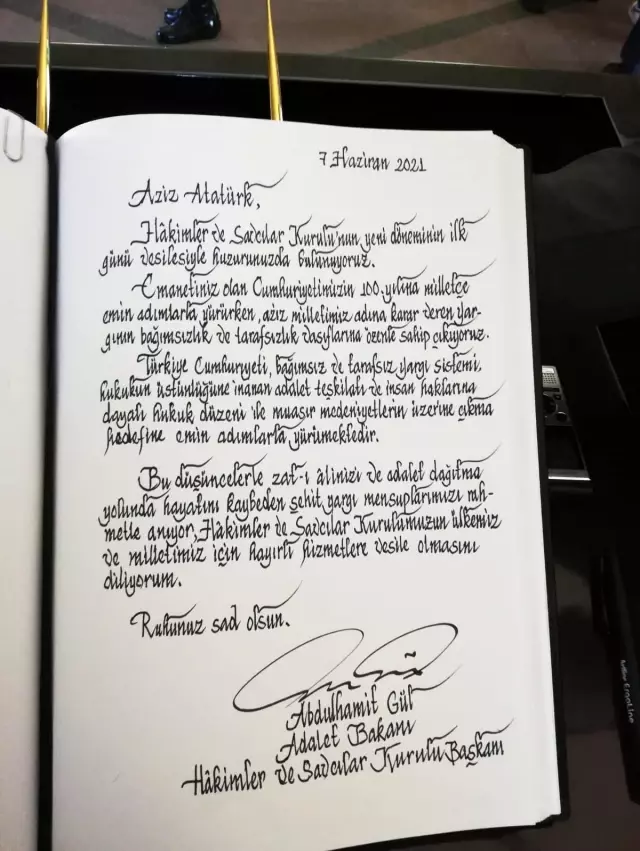 7 Haziran 2021
Aziz Atatürk,
Hâkimler ve Savcılar Kurulu'nun yeni döneminin ilk
günü vesilesiyle huzurunuzda bulunuyoruz.
Emanetiniz olan Cumhuriyetimizin 100.yılına milletçe
emin adımlarla yürürken, aziz milletimiz adına karar veren yar-
gının bağımsızlık ve tarafsızlık vasıflarına özenle sahip çıkıyoruz.
Türkiye Cumhuriyeti, bağımsız ve tarafsız yargı sistemi,
hukukun üstünlüğüne inanan adalet teşkilatı ve insan haklarına
dayalı hukuk düzeni ile muasır medeniyetlerin üzerine çıkma
hedefine emin adımlarla yürümektedir.
Bu düşüncelerle zat-ı âlinizi ve adalet dağıtma
yolunda hayatını kaybeden şehit yargı mensuplarımızı rah-
metle anıyor, Hâkimler ve Savcılar Kurulumuzun ülkemiz
ve milletimiz için hayırlı hizmetlere vesile olmasını
diliyorum.
Ruhunuz şad olsun.
Abdulhamit Gül
Adalet Bakanı
Hâkimler ve Savcılar Kurulu Başkanı